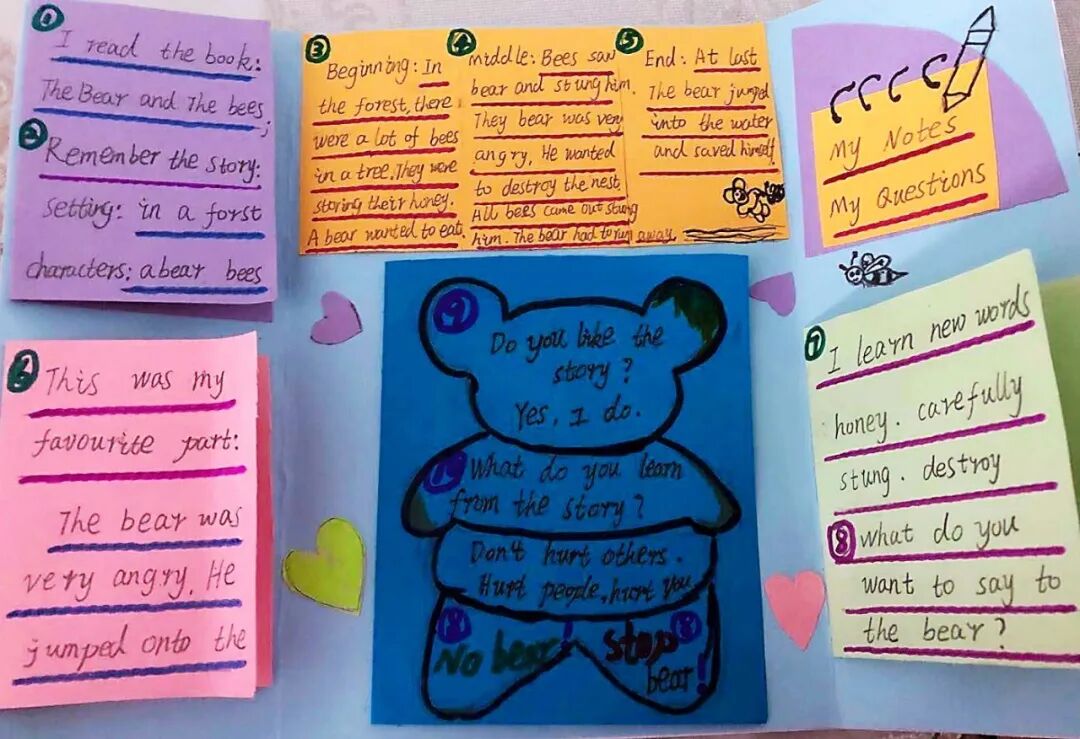 1
I read the book:
The Bear and The bees;
2
Remember the story:
setting: in a forst
characters: abear bees
3
Beginning: In
the forest, there
were a lot of bees
in a tree. They were
storing their honey.
A bear wanted to eat.
4
middle: Bees saw
bear and stung him.
They bear was very
angry. He wanted
to destroy the nest.
All bees came out stung
him. The bear had to run away.
5
End: At last
The bear jumped
into the water
and saved himself.
My Notes
My Questions
6
This was my
favourite part:
The bear was
very angry. He
jumped onto the
9
Do you like the
story?
Yes, I do.
10
What do you learn
from the story?
Don't hurt others.
Hurt people, hurt you
8
No bear!
8
stop
bear!
7
I learn new words
honey. carefully
stung. destroy
8
what do you
want to say to
the bear?